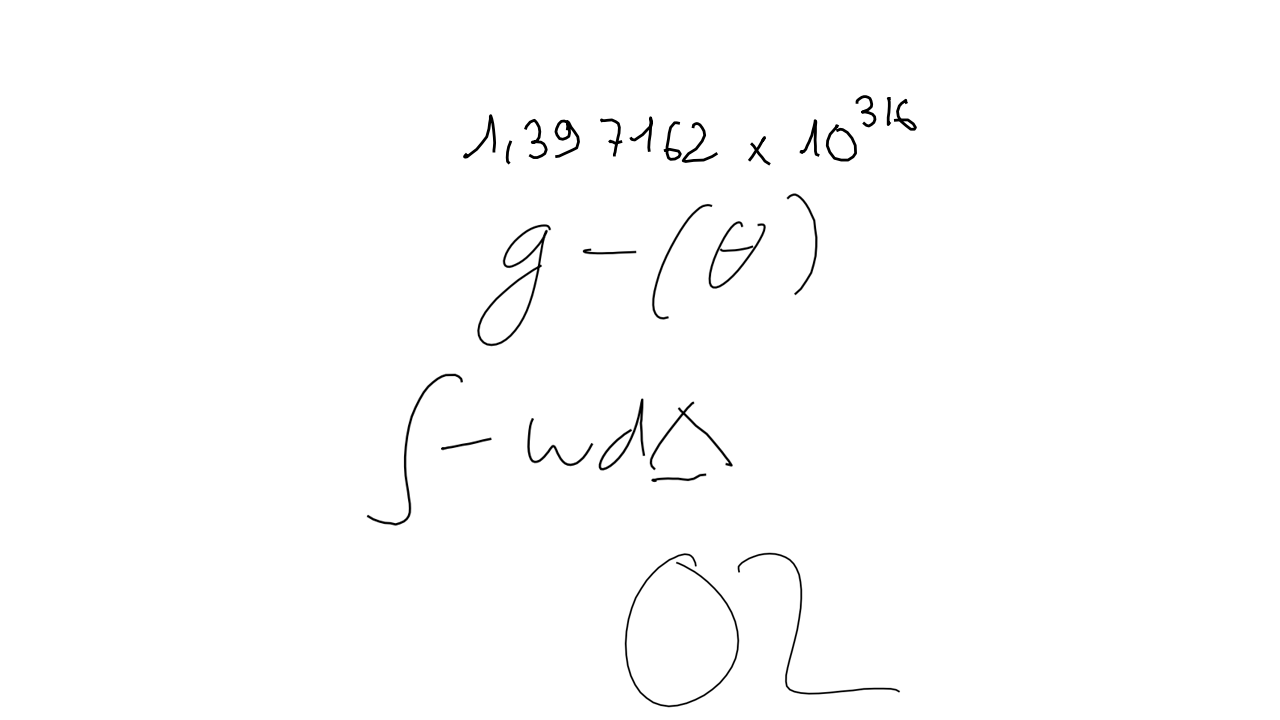 1,397162 x 10³¹⁶
g – (θ)
∫ – w d Δ
02